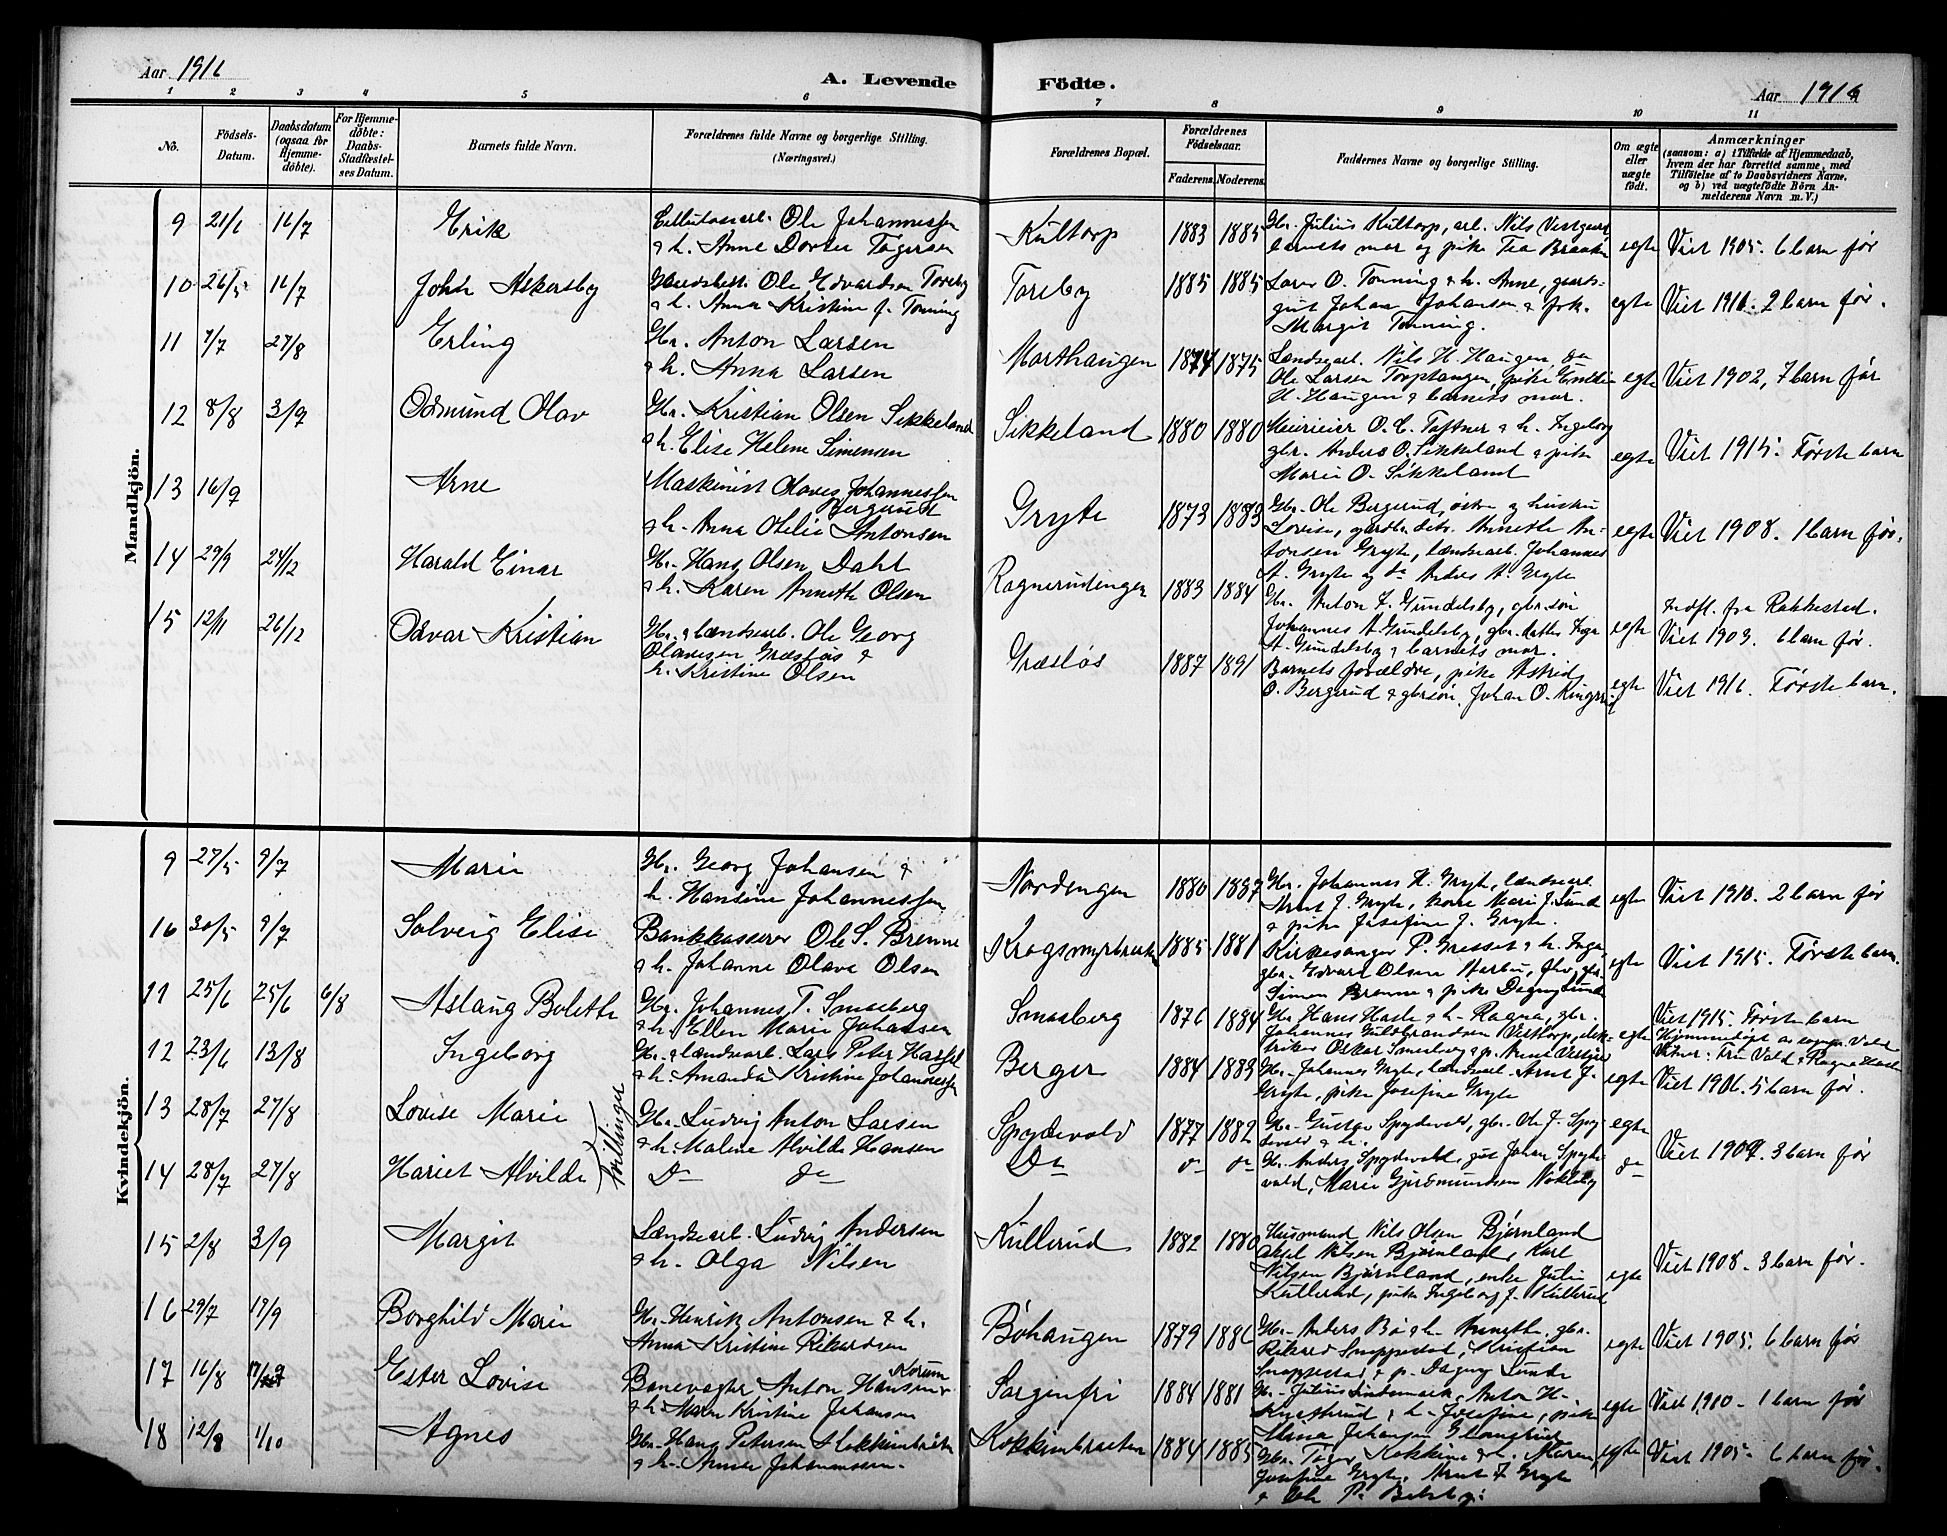 Aar 1916
A. Levende Födte.
Aar 1916
1 2 3 4 5 6 7 8 9 10 11
No.
Födsels-Datum.
Daabsdatum (ogsaa for Hjemme-døbte).
For Hjemme-døbte: Daabs-Stadfæstel-ses Datum.
Barnets fulde Navn.
Forældrenes fulde Navne og borgerlige Stilling. (Næringsvei.)
Forældrenes Bopæl.
Forældrenes Födselsaar.
Faderens. Moderens.
Faddernes Navne og borgerlige Stilling.
Om ægte eller uægte födt.
Anmærkninger
(saasom: a) i Tilfælde af Hjemmedaab,
hvem der har forrettet samme, med
Tilföielse af to Daabsvidners Navne,
og b) ved uægtefödte Börn An-
melderens Navn m. V.)
Mandkjön.
9 21/6 16/7 Erik
Ole Johannessen
& h. Anne Dortea Tøgersen
Kultorp 1883 1885
Gbr. Julius Kultorp, arb. Nils
barnets mor og pike Tea
egte Viet 1905. 6 barn før
10 26/5 16/7 John Askersby
Ole Edvardsen Toreby
& h. Anna Kristine f. Tonning
Toreby 1885 1885
Lærer O. Tonning & h. Anne, gaards-
gut Johan Johansen & frk.
Margit Tonning.
egte Viet 1911. 2 barn før.
11 7/7 27/8 Erling
Gbr. Anton Larsen
& h. Anna Larsen
Morthaugen 1874 1875
Landsearb. Nils H. Haugen, do
Ole Larsen Torptangen, pike Emilie
H. Haugen & barnets mor.
egte Viet 1902, 7 barn før
12 8/8 3/9 Odmund Olav
Gbr. Kristian Olsen Sikkeland
& h. Elise Helene Simensen
Sikkeland 1880 1880
Meierieier O. C. Toftner & h. Ingeborg
gbr. Anders O. Sikkeland & pike
Marie O. Sikkeland
egte Viet 1915. Første barn
13 16/9 Arne
Maskinist Olaves Johannessen
Bergerud
& h. Anna Otilie Antonsen
Gryte 1873 1883
Gbr. Ole Bergerud, østre og hustru
Lovise, gaardbr. datr. Annette An-
tonsen Gryte, landsearb. Johannes
A. Gryte og do Andres A. Gryte
egte Viet 1908. 1 barn før.
14 29/9 24/12 Harald Einar
Gbr. Hans Olsen Dahl
& h. Karen Annette Olsen
Ragnerudengen 1883 1884
Gbr. Anton J. Gundelsby, gbr. søn
Johannes A. Gundelsby, gbr. datter Inga
A. Gundelsby & barnets mor.
egte Indfl. fra Rakkestad.
Viet 1903. 6 barn før.
15 12/11 26/12 Odvar Kristian
Gbr. & landsearb. Ole Georg
Olavesen Græsløs &
h. Kristine Olsen
Græsløs 1887 1891
Barnets forældre, pike Astrid
O. Bergerud & gbr søn. Johan O.
egte Viet 1916. Første barn.
Kvindekjön.
9 27/5 9/7 Marie
Gbr. Georg Johansen &
h. Hansine Johannessen
Nordengen 1880 1887
Gbr. Johannes H. Gryte, landsearb.
Arnt J. Gryte, kone Mari J. Lund
& pike Josefine J. Gryte.
egte Viet 1910. 2 barn før
10 30/5 9/7 Solveig Elise
Bankkasserer Ole S. Brenne
& h. Johanne Olava Olsen
1885 1881
Kirkesanger P. Gresset & h. Inga,
gbr. Edvard Olsen
Simen Brenne & pike Dagny Lunde
egte Viet 1915. Første barn.
11 25/6 25/6 6/8 Aslaug Bolette
Gbr. Johannes T. Smaberg
& h. Ellen Marie Johansen
Smaaberg 1876 1884
Gbr. Hans Hasle & h. Ragna, gbr.
Johannes Guldbrandsen
triker Oskar
egte Viet 1915. Første barn
Hjemmedøpt av Vald
Vitner: Fru Vold & Ragna Hasle
12 23/6 13/8 Ingeborg
Gbr. & landsearb. Lars Peter Hassel
& h. Amanda Kristine Johannessen
Berger 1884 1889
Gbr. Johannes Gryte, landsearb. Arnt J.
Gryte, pike Josefine Gryte
egte Viet 1906. 5 barn før.
13 28/7 27/8 Lovise Marie
Tvillinger
Gbr. Ludvig Anton Larsen
& h. Maline Alvilde Hansen
Spydevold 1877 1882
Gbr. Gustav Spydevold, gbr. Ole J. Spy-
devold & h.
egte Viet 1904. 3 barn før
14 28/7 27/8 Hariet Alvilde
Do do
Do do do
Gbr. Anders Spydevold, gut Johan Spyde-
vold, Marie Gjermundsen Nøkleby
do
15 2/8 3/9 Margit
Landsearb. Ludvig Andersen
& h. Olga Nilsen
Kullerud 1882 1880
Husmand Nils Olsen Bjørnland
Aksel Nilsen Bjørnland, Karl
Nilsen Bjørnland, enke Julie
Kullerud, pike Ingeborg J. Kullerud
egte Viet 1908. 3 barn før.
16 29/7 17/9 Borghild Marie
Gbr. Henrik Antonsen & h.
Anna Kristine Rikardsen
Bøhaugen 1879 1886
Gbr. Anders Bø & h. Annette, gbr.
Rikard Snoppestad, Kristian
Snoppestad & p. Dagny Lunde
egte Viet 1905. 6 barn før
17 16/8 17/9 Ester Lovise
Banevogter Anton Hansen Korum
& h. Maren Kristine Johansen
Sorgenfri 1884 1881
Gbr. Julius Lindemark, Anton H.
& h. Josefine, pike
Mina Johansen
egte Viet 1910 - 1 barn før
18 12/8 1/10 Agnes
Gbr. Hans Petersen Kokkimbraaten
& h. Anna Johannessen.
Kokkimbraaten 1884 1885
Gbr. Tøger Kokkim & h. Maren,
Josefine Gryte, Arnt J. Gryte
& Ole P.
egte Viet 1905 - 6 barn før.